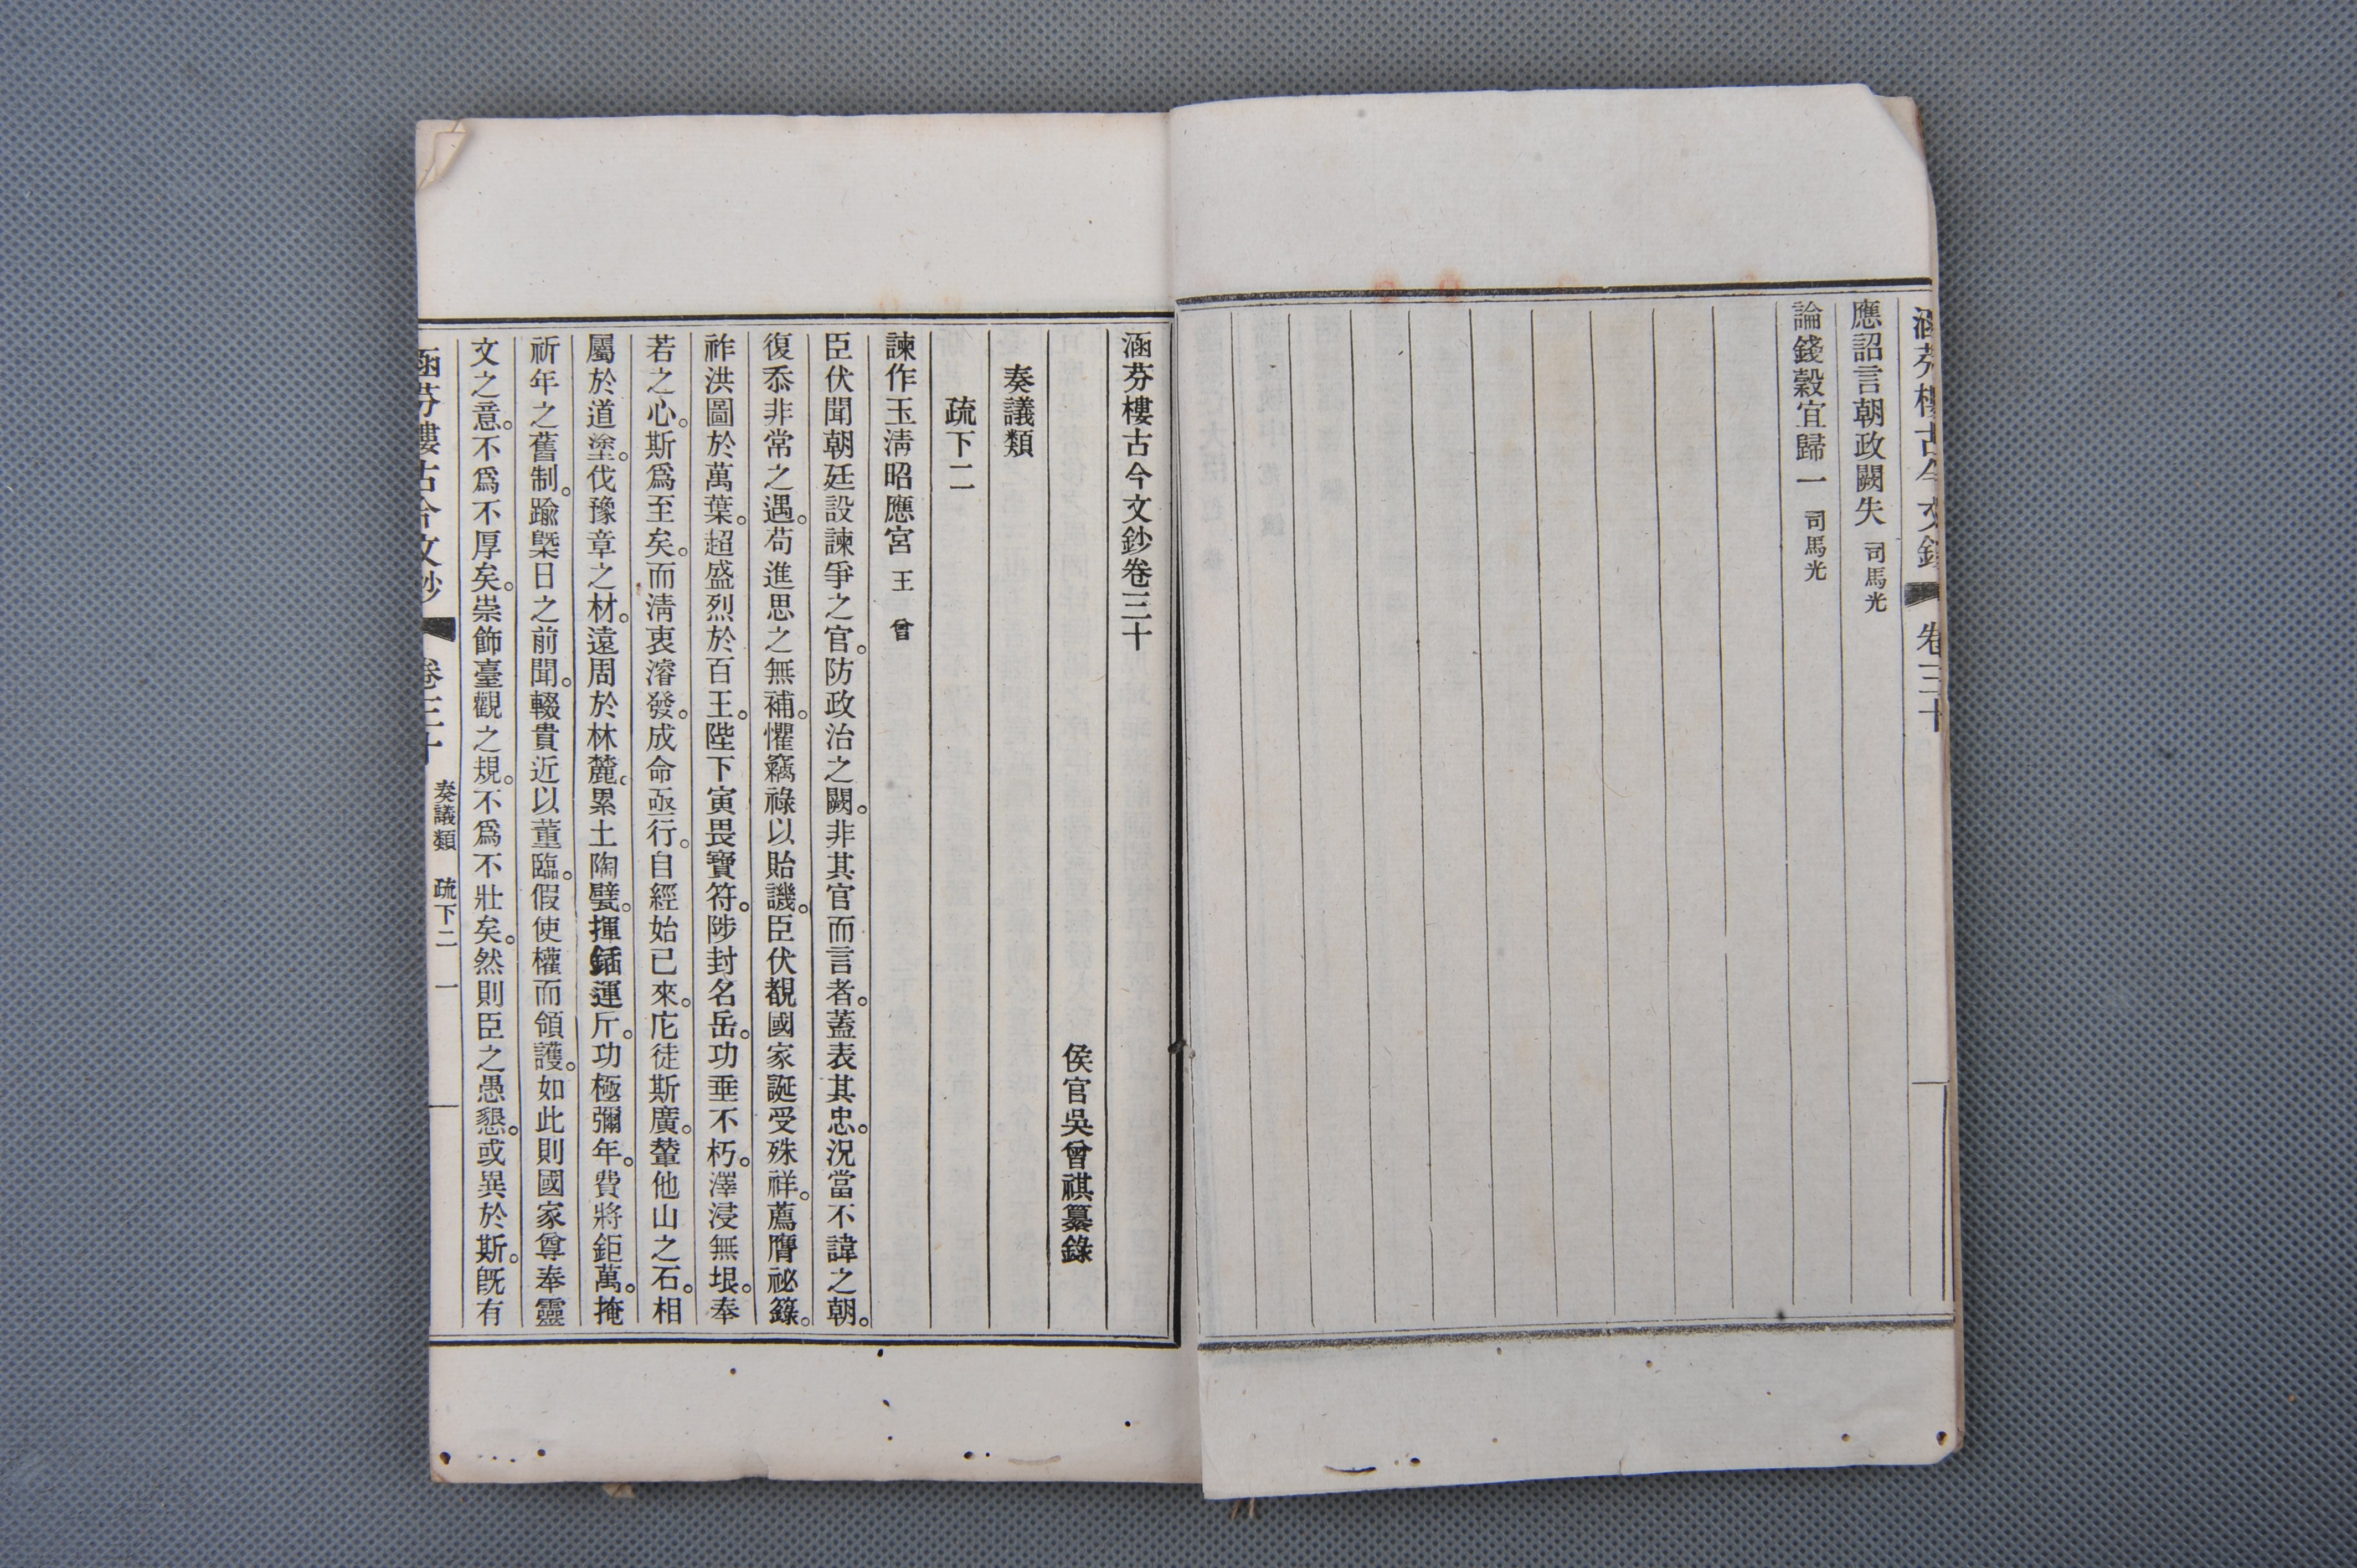 涵芬樓古今文鈔 卷三十
應詔言朝政闕失 司馬光
論錢穀宜歸一 司馬光
涵芬樓古今文鈔卷三十
侯官吳曾祺纂錄
奏議類
疏下二
諫作玉淸昭應宮 王曾
臣伏聞朝廷設諫爭之官。防政治之闕。非其官而言者。蓋表其忠。況當不諱之朝。
復忝非常之遇。苟進思之無補。懼竊祿以貽譏。臣伏覩國家誕受殊祥。薦膺祕籙。
祚洪圖於萬葉。超盛烈於百王。陛下寅畏寶符。陟封名岳。功垂不朽。澤浸無垠。奉
若之心。斯爲至矣。而淸衷濬發。成命亟行。自經始已來。庀徒斯廣。輦他山之石。相
屬於道塗。伐豫章之材。遠周於林麓。累土陶甓。揮鍤運斤。功極彌年。費將鉅萬。掩
祈年之舊制。踰槩日之前聞。輟貴近以董臨。假使權而領護。如此則國家尊奉靈
文之意。不爲不厚矣。崇飾臺觀之規。不爲不壯矣。然則臣之愚懇。或異於斯。旣有
涵芬樓古今文鈔 卷三十 奏議類 疏下二 一